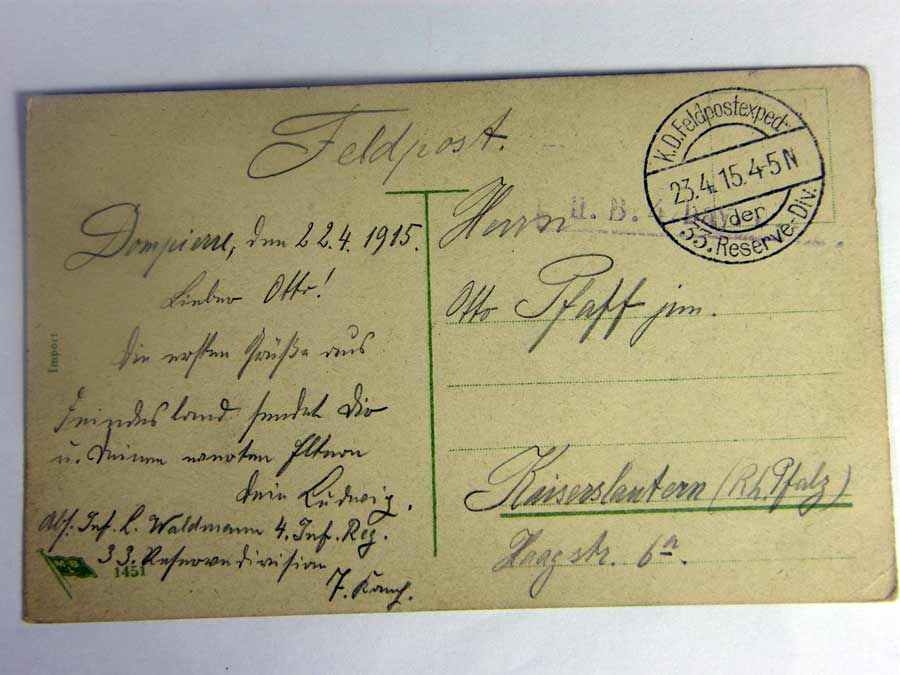 Feldpost.
K.D. Feldpostexped.
23.4.15.4-5N
der
33. Reserve-Div.
Dompierre, den 22.4.1915.
Lieber Otto!
Die ersten Grüße aus
Feindesland sendet Dir
u. Deinen werten Eltern
Dein Ludwig.
Abs. Inf. L. Waldmann 4. Inf. Reg.
33. Reservedivision
7. Komp.
Herrn
Otto Pfaff jun.
Kaiserslautern (Rh. Pfalz)
Haagstr. 6a.
Import
M.B.
1451